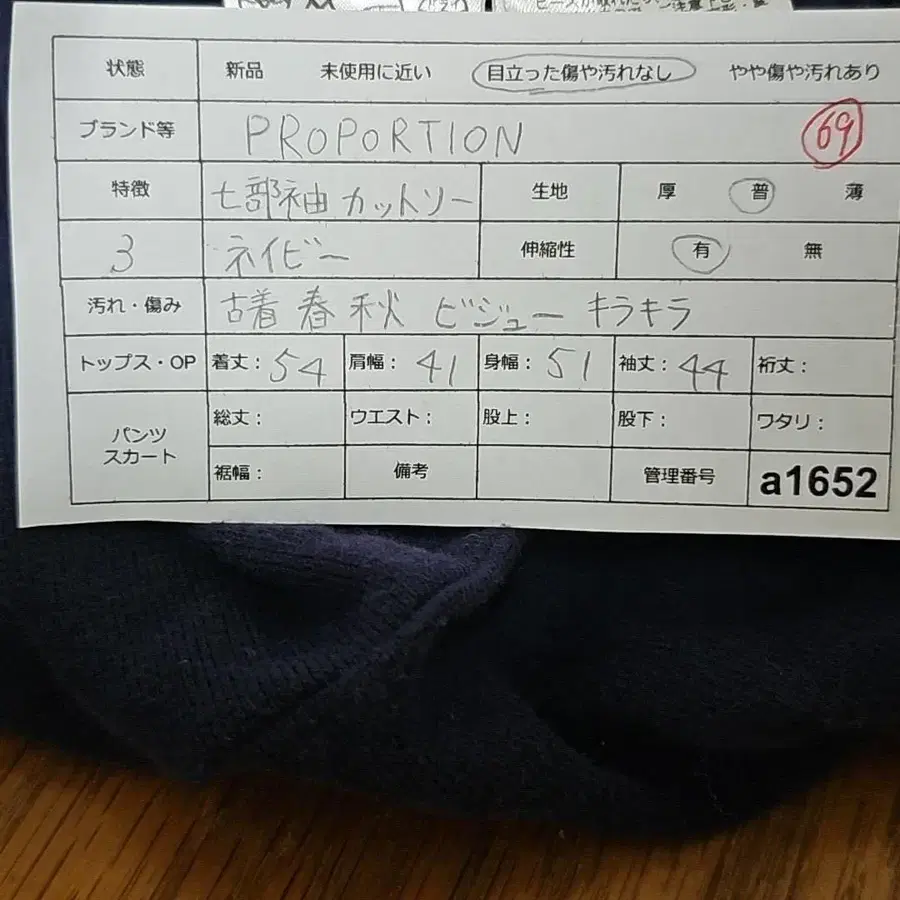 状態 新品 未使用に近い 目立った傷や汚れなし やや傷や汚れあり
ブランド等 PROPORTION 69
特徴 七部袖カットソー 生地 厚 普 薄
3 ネイビー 伸縮性 有 無
汚れ・傷み 古着 春秋 ビジュー キラキラ
トップス・OP 着丈：54 肩幅：41 身幅：51 袖丈：44 裄丈：
パンツ スカート 総丈： ウエスト： 股上： 股下： ワタリ：
裾幅： 備考 管理番号 a1652